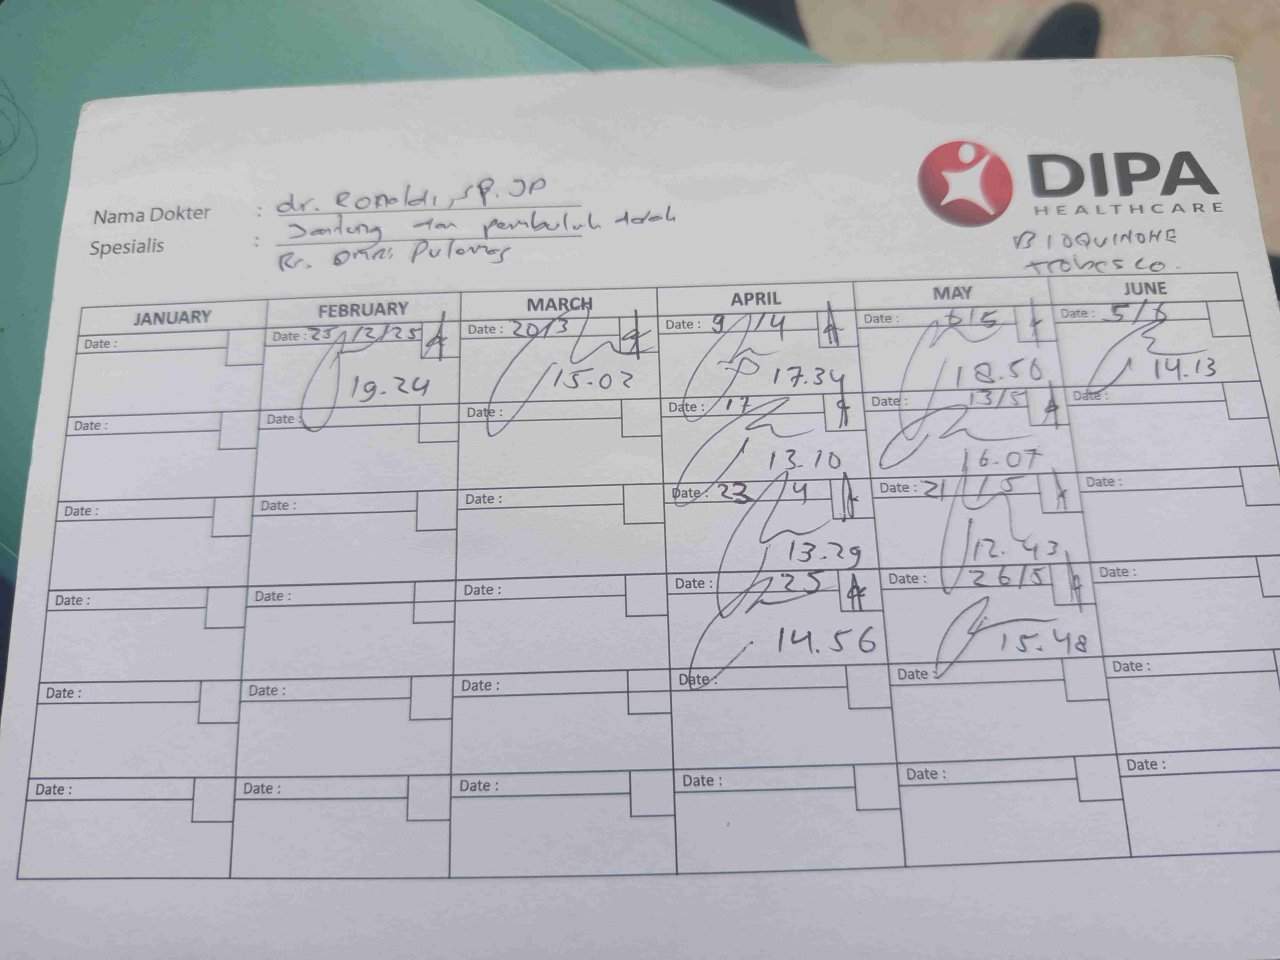 DIPA
HEALTHCARE
Nama Dokter : dr. Ronaldi, SP. JP
Spesialis : Jantung dan pembuluh darah
Rs. Omni Pulomas
BIOQUINONE
JANUARY FEBRUARY MARCH APRIL MAY JUNE
Date : Date : 25/2/25 Date : 20/3 Date : 9/4 Date : 6/5 Date : 5/6
19.24 15.02 17.34 18.50 14.13
Date : Date : Date : Date : 17 Date : 13/5 Date :
13.10 16.07
Date : Date : Date : Date : 23/4 Date : 21/5 Date :
13.29 12.43
Date : Date : Date : Date : 25 Date : 26/5 Date :
14.56 15.48
Date : Date : Date : Date : Date : Date :
Date : Date : Date : Date : Date : Date :